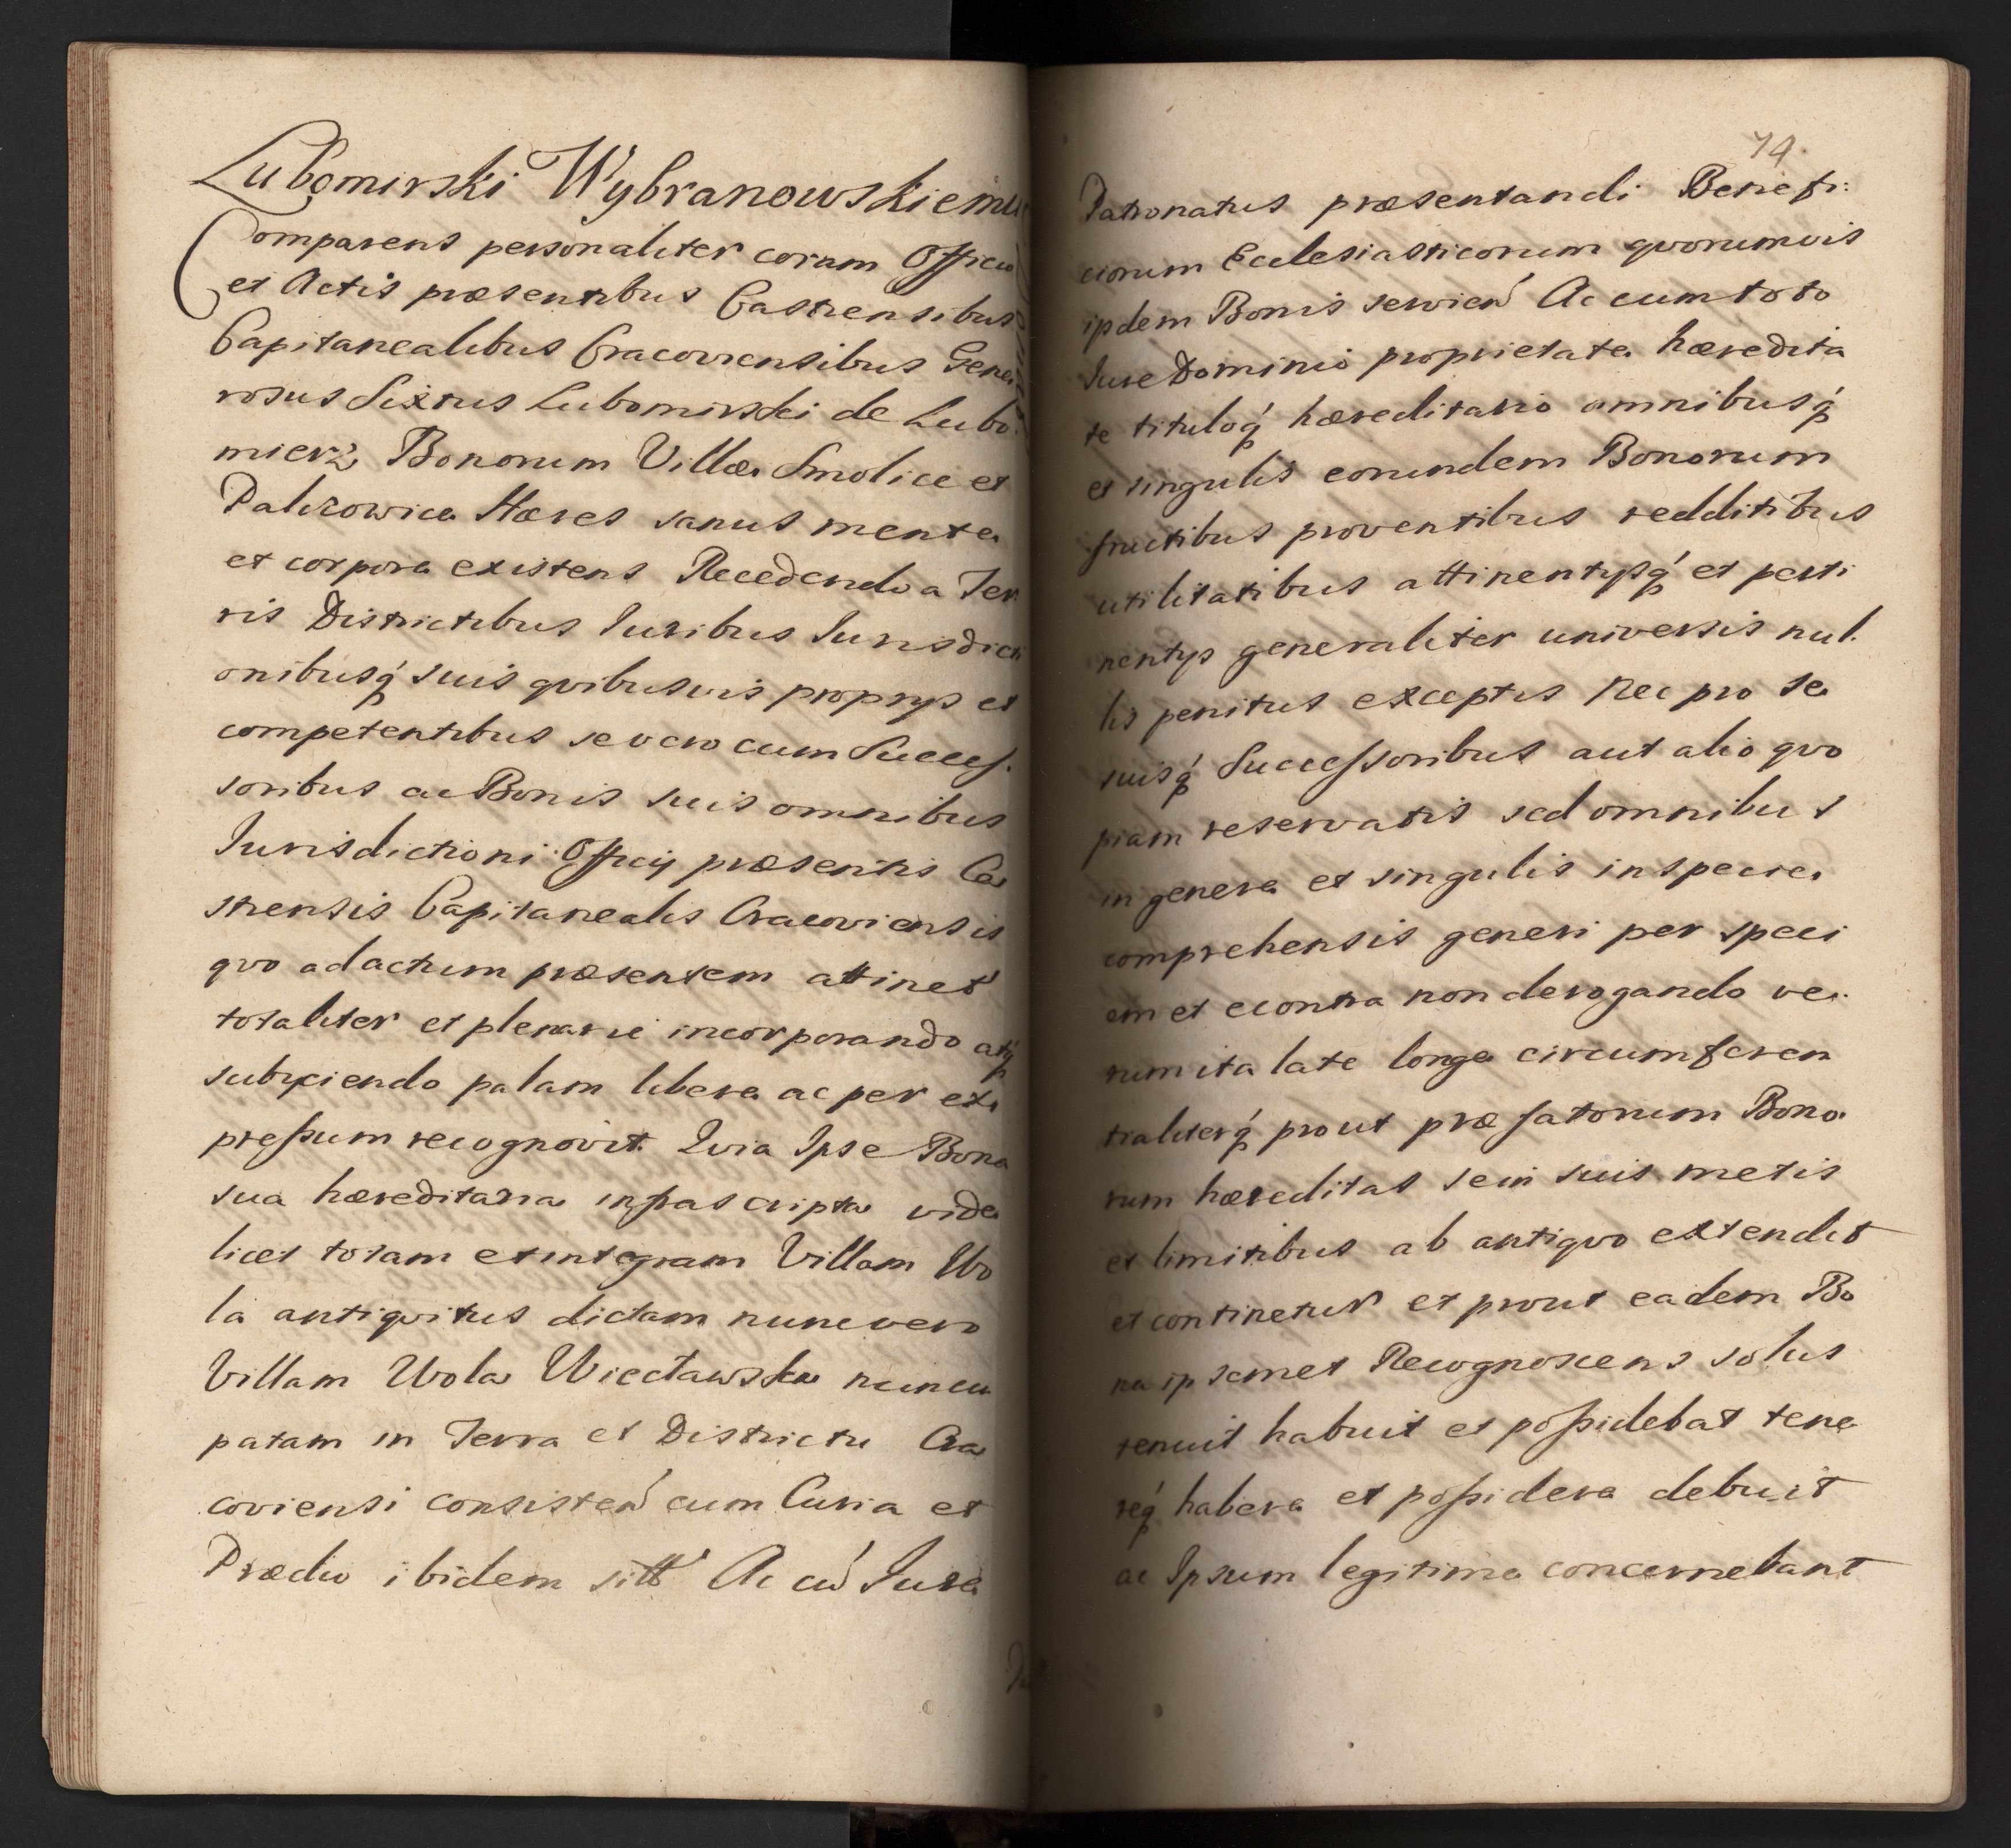 Lubomirski Wybranowskiemu
Comparens personaliter coram Officio
et Actis præsentibus Castrensibus
Capitanealibus Cracoviensibus Gene
rosus Sixtus Lubomirski de Lubo
mierz Bonorum Villæ Smolice et
Palczowice Hæres sanus mente
et corpore existens Recedendo a Ter
ris Districtibus Iuribus Iurisdicti
onibusq́ suis qvibusvis proprys et
competentibus se vero cum Succes
soribus ac Bonis suis omnibus
Iurisdictioni Officij præsentis Ca
strensis Capitanealis Cracoviensis
qvo ad actum præsentem attinet
totaliter et plenarie incorporando atq́
subyciendo palam libere ac per ex
pressum recognovit. Qvia Ipse Bona
sua hæreditaria infrascripta vide
licet totam et integram Villam Wo
la antiqvitus dictam nunc vero
Villam Wola Więcławska nuncu
patam in Terra et Districtu Cra
coviensi consisteń cum Curia et
Prædio ibidem sitt Ac cū Iure
74.
Patronatus præsentandi Benefi:
ciorum Ecclesiasticorum qvorumvis
ipdem Bonis servień Ac cum toto
Iure Dominio proprietate hæredita
te tituloq́ hæreditario omnibusq́
et singulis eorundem Bonorum
fructibus proventibus redditibus
utilitatibus attinentysq́ et perti
nentys generaliter universis nul
lis penitus exceptis Nec pro se
suisq́ Successoribus aut alio qvo
piam reservatis sed omnibus
in genere et singulis in specie
comprehensis generi per speci
em et econtra non derogando ve
rum ita late longe circumferen
tialiterq́ prout præfatorum Bono
rum hæreditas se in suis metis
et limitibus ab antiqvo extendit
et continetur et prout eadem Bo
na ipsemet Recognoscens solus
tenuit habuit et possidebat tene
req́ habere et possidere debuit
ac Ipsum legitime concernebant